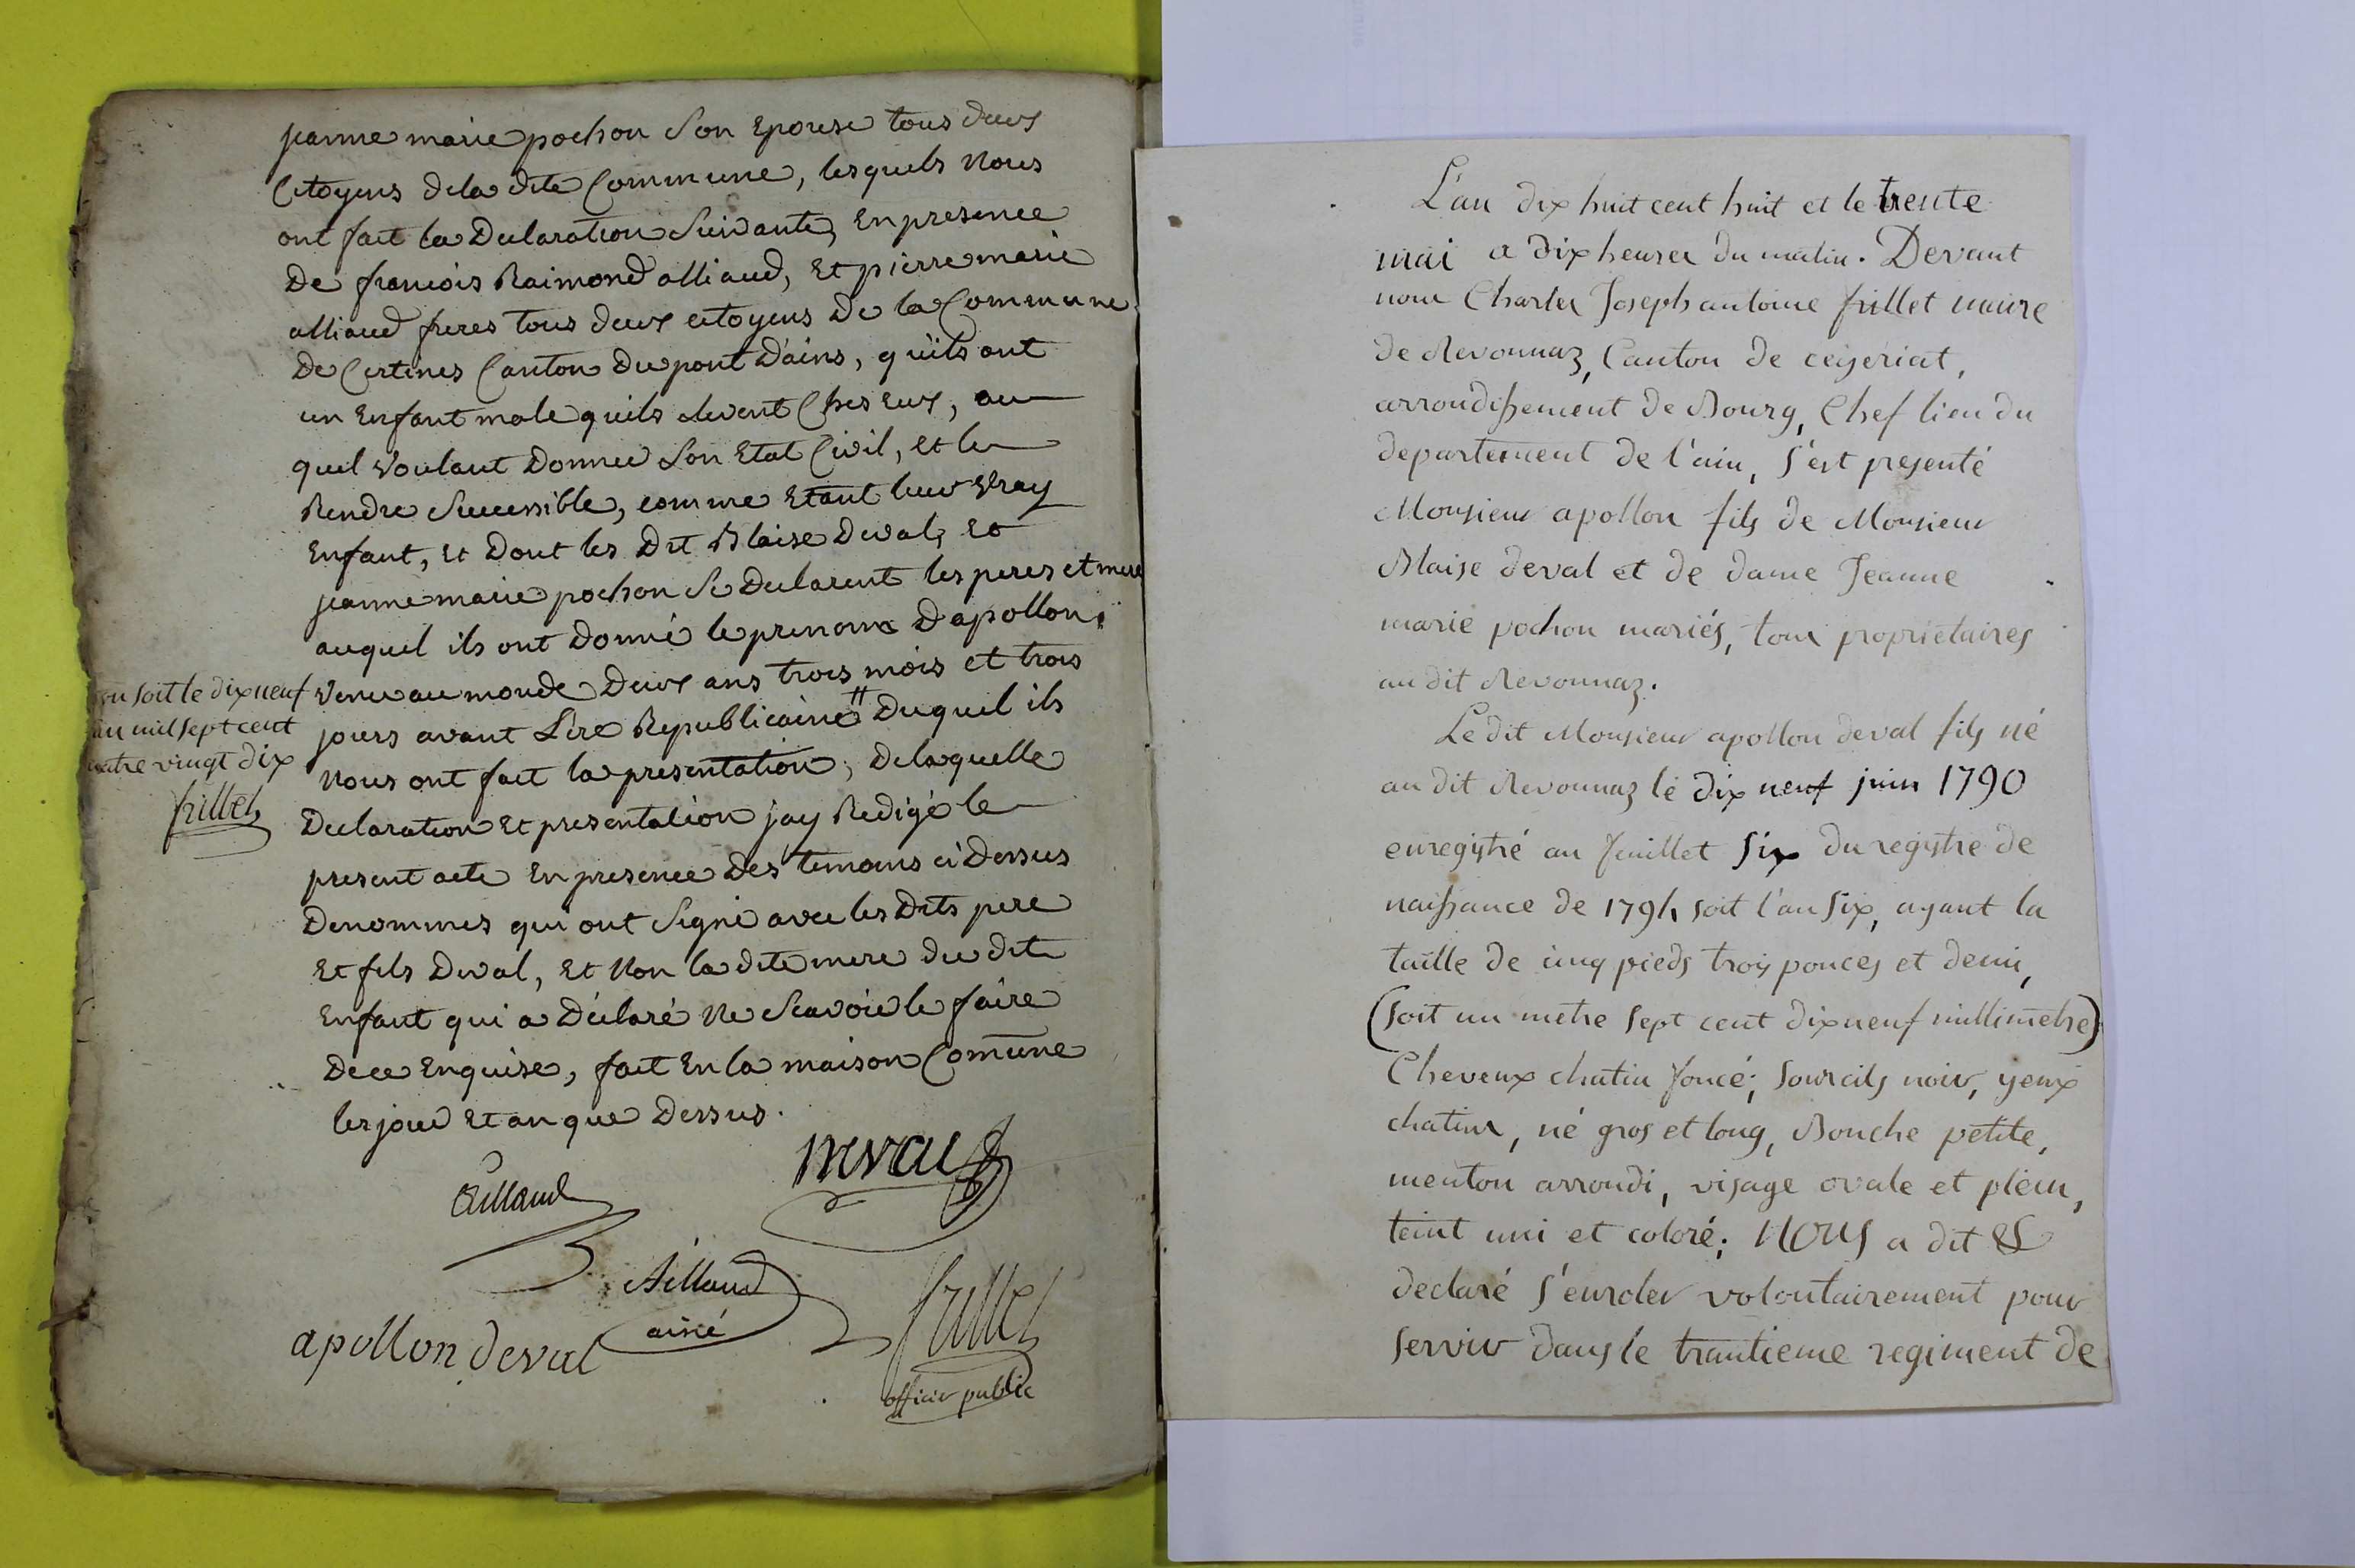 jeanne marie pochon son Epouse tous deux
Citoyens dela dite Commune, lesquels nous
ont fait la Declaration Suivante, En presence
De francois Raimond alliaud, Et pierre marie
alliaud freres tous deux citoyens De la Commune
De Certines Canton du pont D'ains, qu'ils ont
un Enfant male quils elevent Ches Eux, au
quel voulant Donner Son Etat Civil, et le
Rendre Successible, comme Etant leur vray
Enfant, Et Dont les Dit Blaise Deval, Et
jeanne marie pochon Se Declarent les peres et mere
auquel ils ont Donné le prenom D'apollon,
venu au monde Deux ans trois mois et trois
jours avant L'ere Republicaine # Duquel ils
nous ont fait la presentation, Delaquelle
Declaration Et presentation jay Redigé le
present acte En presence Des temoins ci Dessus
Denommes qui ont Signé avec les Dits pere
Et fils Deval, Et Non la dite mere du dit
Enfant qui a Déclaré Ne Scavoir le faire
De ce Enquise, fait En la maison Comune
les jour Et an que Dessus.
ou soit le dix neuf
mil sept cent
quatre vingt dix
frillet
Alliaud
Deval
Alliaud
ainé
apollon deval
frillet
officier public
L'an dix huit cent huit et le trente
mai a dix heures du matin. Devant
nous Charles Joseph antoine frillet maire
de Revonnaz, Canton de ceyzeriat,
arrondissement de Bourg, Chef lieu du
departement de l'ain, s'est presenté
Monsieur apollon fils de Monsieur
Blaise deval et de dame Jeanne
marie pochon mariés, tous proprietaires
au dit Revonnaz.
Le dit Monsieur apollon deval fils né
au dit Revonnaz le dix neuf juin 1790
enregistré au feuillet six du registre de
naissance de 1794 soit l'an six, ayant la
taille de cinq pieds trois pouces et demi,
(soit un metre sept cent dix neuf millimetre)
Cheveux chatin foncé; sourcils noir, yeux
chatins, né gros et long, Bouche petite,
menton arrondi, visage ovale et plein,
teint uni et coloré; NOUS a dit &
declaré s'enroler volontairement pour
servir dans le trantieme regiment de